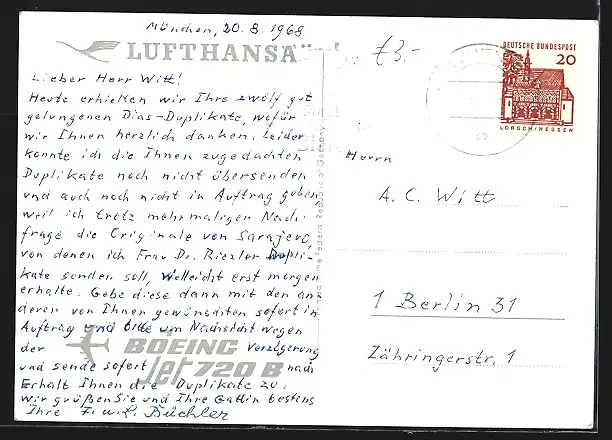 München, 20.8.1968
LUFTHANSA
Lieber Herr Witt!
Heute erhielten wir Ihre zwölf gut
gelungenen Dias-Duplikate, wofür
wir Ihnen herzlich danken. Leider
konnte ich die Ihnen zugedachten
Duplikate noch nicht übersenden
und auch noch nicht in Auftrag geben
weil ich trotz mehrmaliger Nach-
frage die Originale von Sarajevo,
von denen ich Frau Dr. Riezler Dupli-
kate senden soll, vielleicht erst morgen
erhalte. Gebe diese dann mit den an
deren von Ihnen gewünschten sofort in
Auftrag und bitte um Nachsicht wegen
der Verzögerung
BOEING
Jet 720 B
und sende sofort nach
Erhalt Ihnen die Duplikate zu.
Wir grüßen Sie und Ihre Gattin bestens
Ihre F. u. L. Büchler
£3.-
DEUTSCHE BUNDESPOST
20
LORSCH/HESSEN
Herrn
A. C. Witt
1 Berlin 31
Zähringerstr. 1